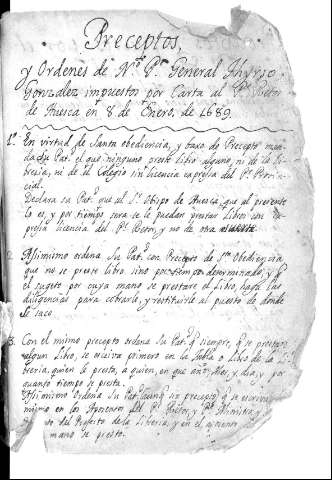 Preceptos,
y Ordenes de N.º P.e General Thyrso
Gonzalez impuestos por Carta al P.e Rector
de Huesca en 8 de Enero, de 1689.
1.º En virtud de Santa obediencia, y baxo de Precepto man-
da Su Pat.d el que ninguno preste libro alguno, ni de la Li-
breria, ni de el Colegio sin licencia expresa del P.e Provin-
cial.
Declara su Pat.d que al S.r Obispo de Huesca, que al presente
lo es, y por tiempo sera se le puedan prestar Libros con ex-
presa licencia del P.e Retor, y no de otra suerte.
2. Assimismo ordena Su Pat.d con Precepto de S.ta Obediencia
que no se preste libro sino por tiempo determinado, y q
el sugeto por cuya mano se prestare el Libro, haga las
diligencias para cobrarle, y restituirle al puesto de donde
se saco.
3. Con el mismo precepto ordena Su Pat.d q siempre, q se prestare
algun Libro, se escriva primero en la tabla o libro de la Li-
breria, quien le presto, a quien, en que año, Mes, y dia, y por
quanto tiempo se presta.
Assimismo Ordena Su Pat.d (aunq sin precepto) q se escriva
mismo en los Aposentos del P.e Rector, y P.e Ministro, y
del Prefecto de la Libreria, y en el aposento
mano se presto.